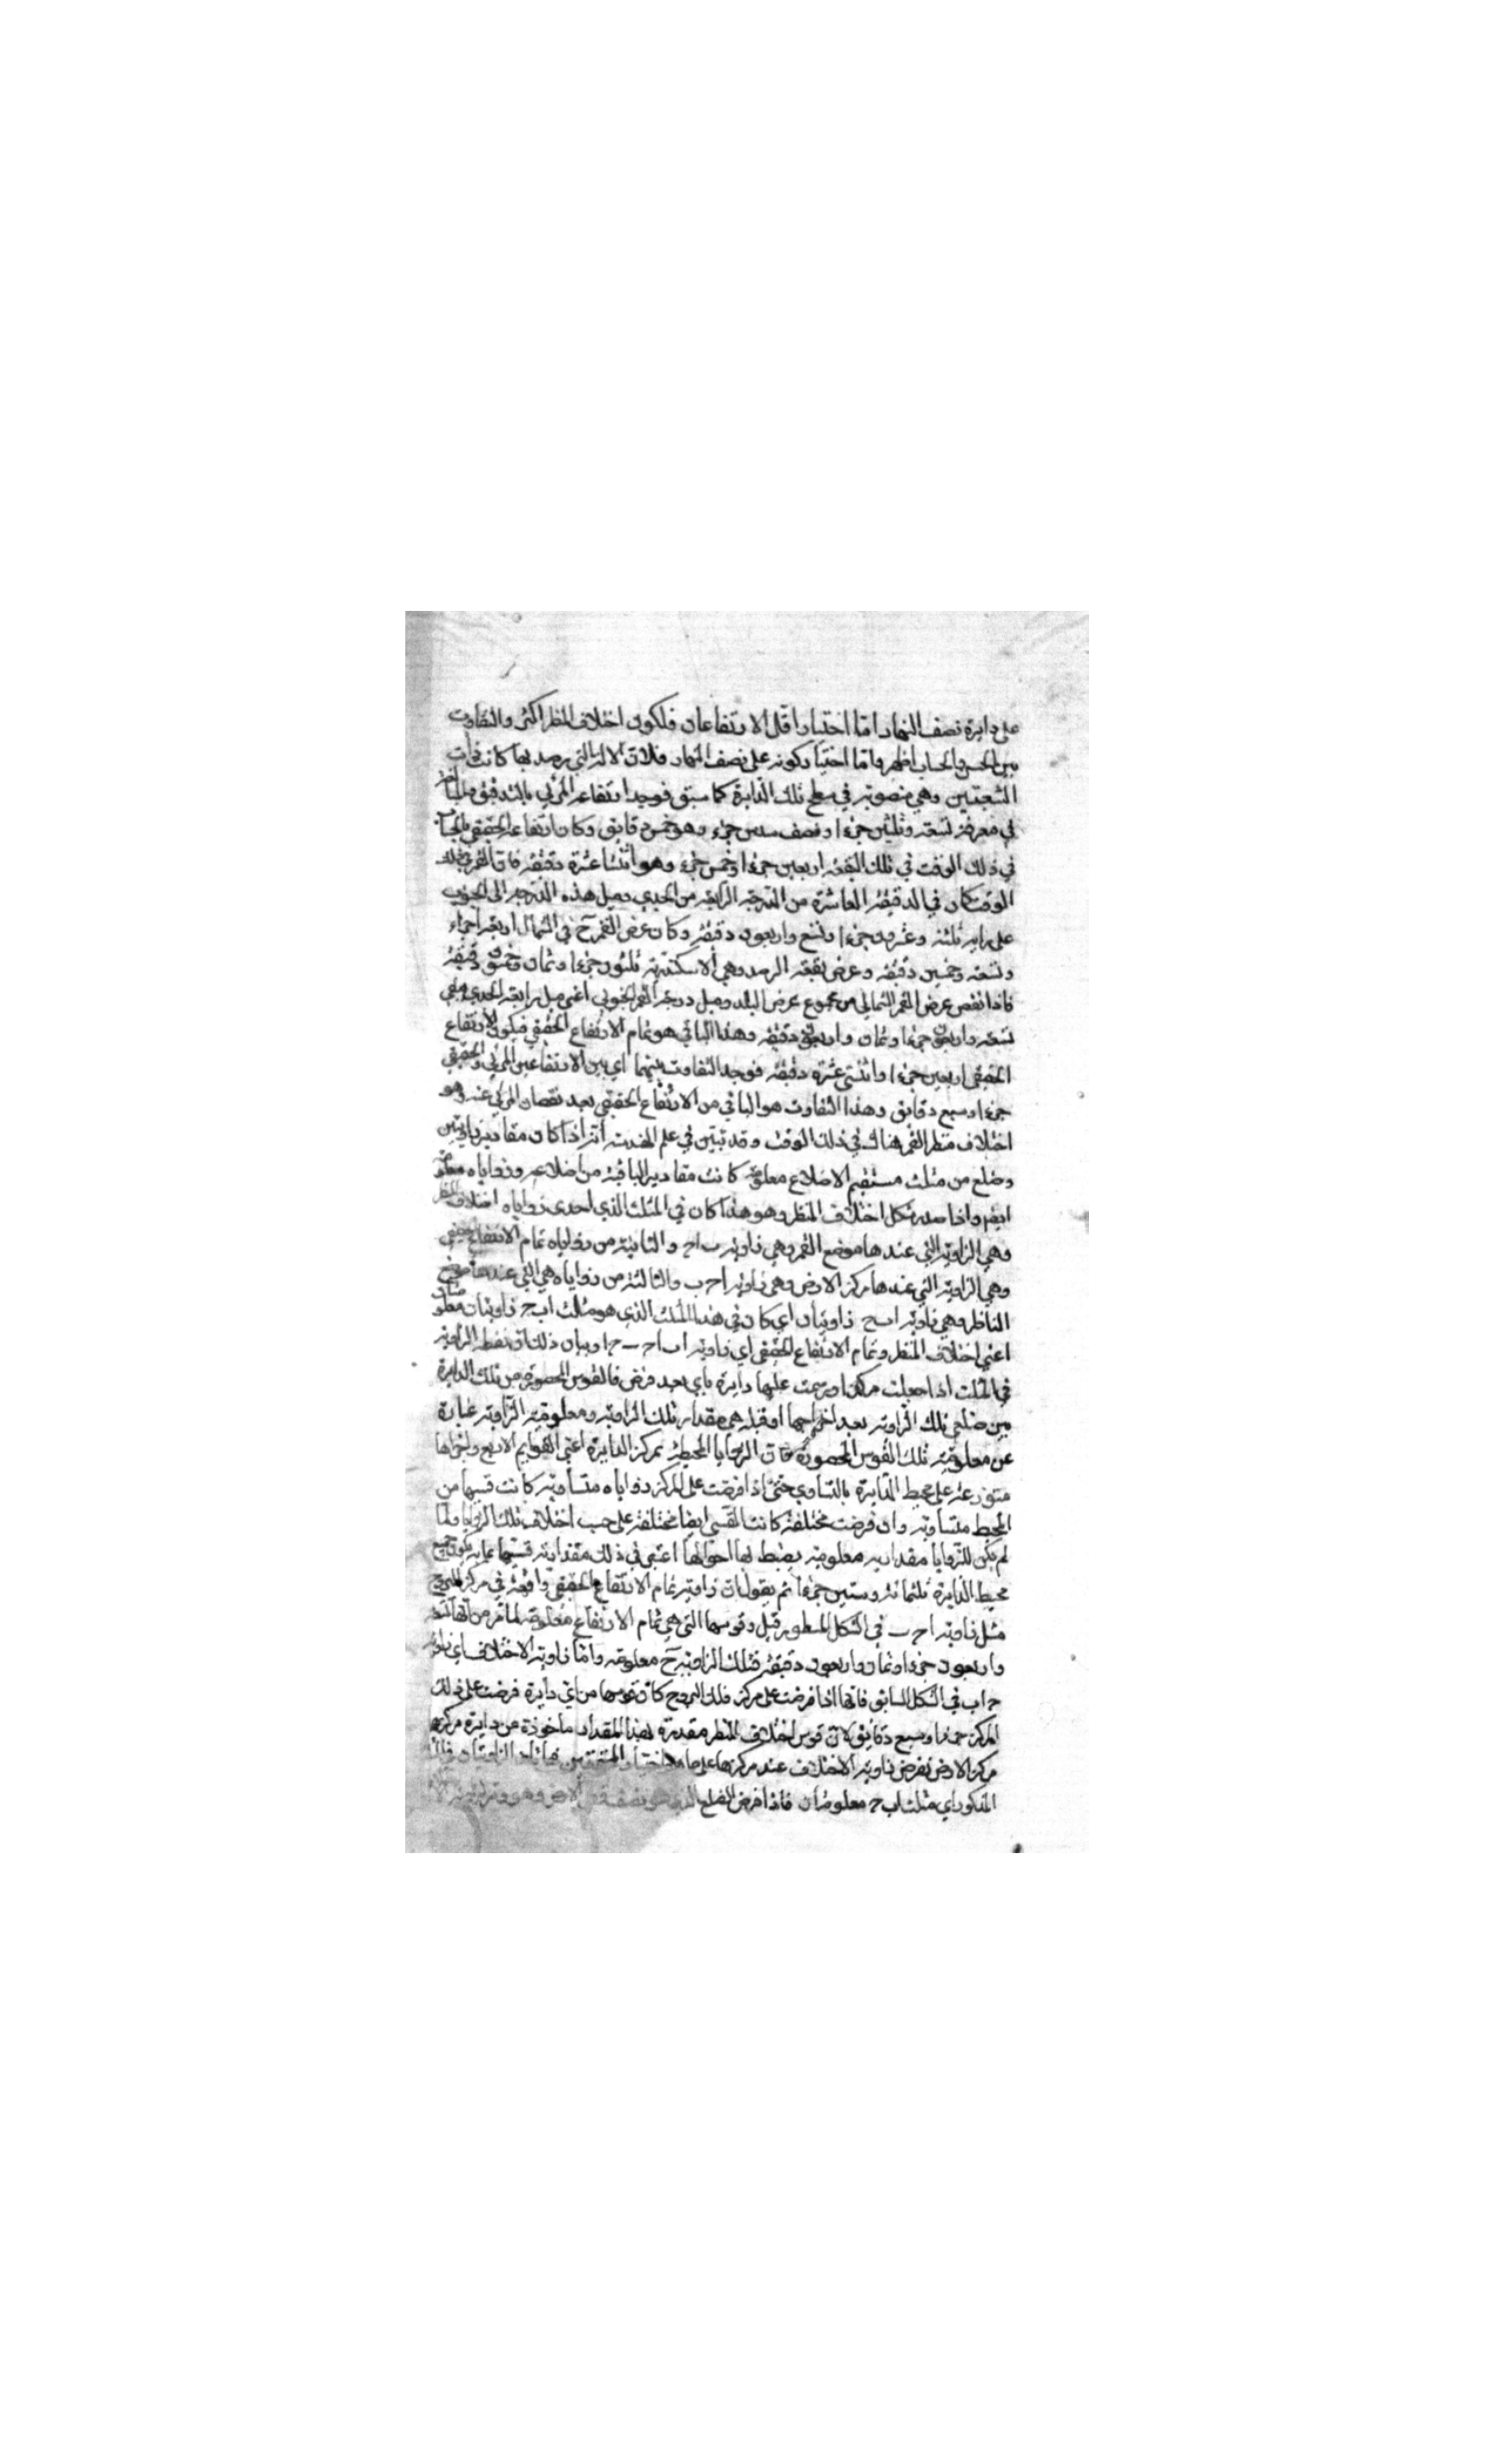 على دايرة نصف النهار اما اختيار اقل الارتفاعات فلكون اختلاف المنظر اكثر والتفاوت
بين الحس والحساب اظهر واما اختيار كونه على نصف النهار فلان الالة التي رصد بها كانت ذات
الشعبتين وهي منصوبة في سطح تلك الدايرة كما سبق فوجد ارتفاعه المرئي بالتدقيق
في معرفته تسعة وثلثين جزءا ونصف سدس جزء وهو خمس دقايق وكان ارتفاعه الحقيقي بالحساب
في ذلك الوقت في تلك البقعة اربعين جزءا وخمس جزء وهو اثنتا عشرة دقيقة فان القمر في ذلك
الوقت كان في الدقيقة العاشرة من الدرجة الرابعة من الجدي وميل هذه الدرجة الى الجنوب
على رايه ثلثة وعشرون جزءا وتسع واربعون دقيقة وكان عرض القمر ح في الشمال اربعة اجزاء
وتسعة وخمسين دقيقة وعرض بقعة الرصد وهي الاسكندرية ثلثون جزءا وثمان وخمسون دقيقة
فاذا نقص عرض القمر الشمالي من مجموع عرض البلد وميل درجة القمر الجنوبي اعني ميل رابعة الجدي بقي
تسعة واربعون جزءا وثمان واربعون دقيقة وهذا الباقي هو تمام الارتفاع الحقيقي فيكون الارتفاع
الحقيقي اربعين جزءا واثنتي عشرة دقيقة فوجد التفاوت بينهما اي بين الارتفاعين المرئي والحقيقي
جزءا وسبع دقايق وهذا التفاوت هو الباقي من الارتفاع الحقيقي بعد نقصان المرئي عنه وهو
اختلاف منظر القمر هناك في ذلك الوقت وقد تبين في علم الهندسة انه اذا كان مقادير زاويتين
وضلع من مثلث مستقيم الاضلاع معلومة كانت مقادير الباقية من اضلاعه وزواياه معلومة
ايضا واذا شكل اختلاف المنظر وهو هذا كان في المثلث الذي احدى زواياه اختلاف المنظر
وهي الزاوية التي عندها موضع القمر وهي زاوية ب ا ح والثانية من زواياه تمام الارتفاع الحقيقي
وهي الزاوية التي عندها مركز الارض وهي زاوية ا ح ب والثالثة من زواياه هي التي عندها موضع
الناظر وهي زاوية ا ب ح زاويتان اي كان في هذا المثلث الذي هو مثلث ا ب ح زاويتان معلومتان
اعني اختلاف المنظر وتمام الارتفاع الحقيقي اي زاويتي ب ا ح ب ح ا وبيان ذلك ان نقطة الزاوية
في المثلث اذا جعلت مركزا ورسمت عليها دايرة باي بعد فرض فالقوس المحصورة من تلك الدايرة
بين ضلعي تلك الزاوية بعد اخراجهما او قبله هي مقدار تلك الزاوية ومعلومية الزاوية عبارة
عن معلومية تلك القوس المحصورة فان الزوايا المحيطة بمركز الدايرة اعني القوايم الاربع واجزاها
متوزعة على محيط الدايرة بالتساوي حتى اذا فرضت على المركز زواياه متساوية كانت قسيها من
المحيط متساوية وان فرضت مختلفة كانت القسي ايضا مختلفة على حسب اختلاف تلك الزوايا ولما
لم يكن للزوايا مقدارية معلومية يضبط لها احوالها اعتبر في ذلك مقدارية قسيها بما به يكون جميع
محيط الدايرة ثلثمائة وستين جزءا ثم يقول ان زاوية تمام الارتفاع الحقيقي واقعة في مركز البروج
مثل زاوية ا ح ب في الشكل المسطور قبل وقوسها التي هي تمام الارتفاع معلومة لما مر من انها تسعة
واربعون جزءا وثمان واربعون دقيقة فتلك الزاوية ح معلومة واما زاوية الاختلاف اي زاوية
ح ا ب في الشكل السابق فانها اذا فرضت على مركز فلك البروج كان قوسها من اي دايرة فرضت على ذلك
المركز جزءا وسبع دقايق لان قوس اختلاف المنظر مقدرة بهذا المقدار ماخوذة من دايرة مركزها
مركز الارض نفرض زاوية الاختلاف عند مركزها على ما هو اختيار المتقدمين فهاتان الزاويتان
المذكور اي مثلث ا ب ح معلومتان فاذا فرض الضلع الذي هو نصف قطر الارض وهو